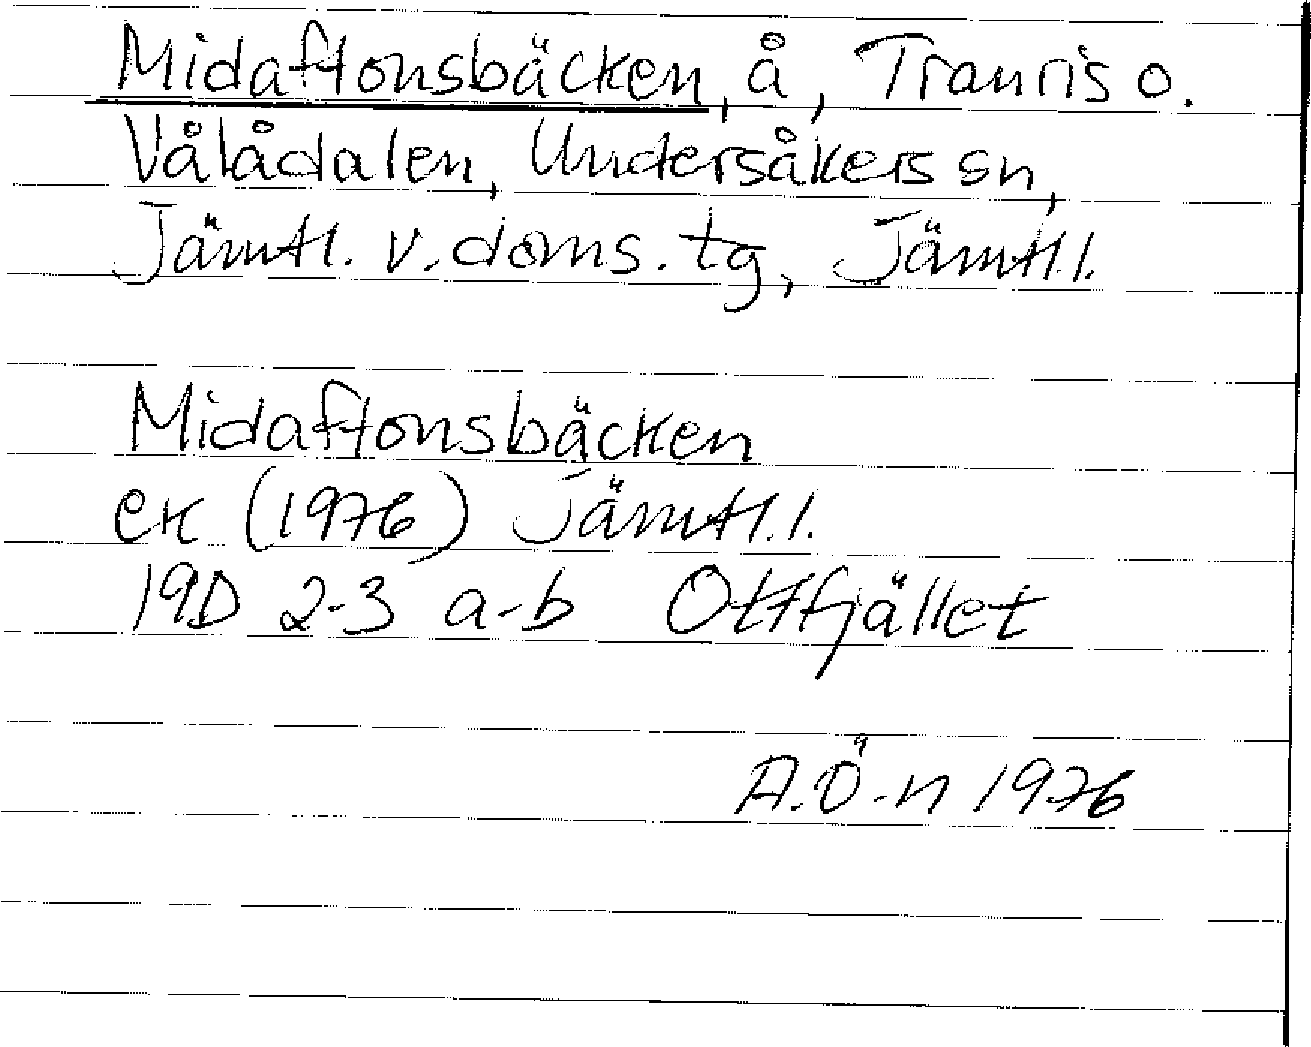 Midaftonsbäcken, å, Tranris o.
Vålådalen, Undersåkers sn,
Jämtl. v. doms. tg, Jämtl.l.
Midaftonsbäcken
ek (1976) Jämtl.l.
19D 2-3 a-b Ottfjället
A.Ö-n 1976